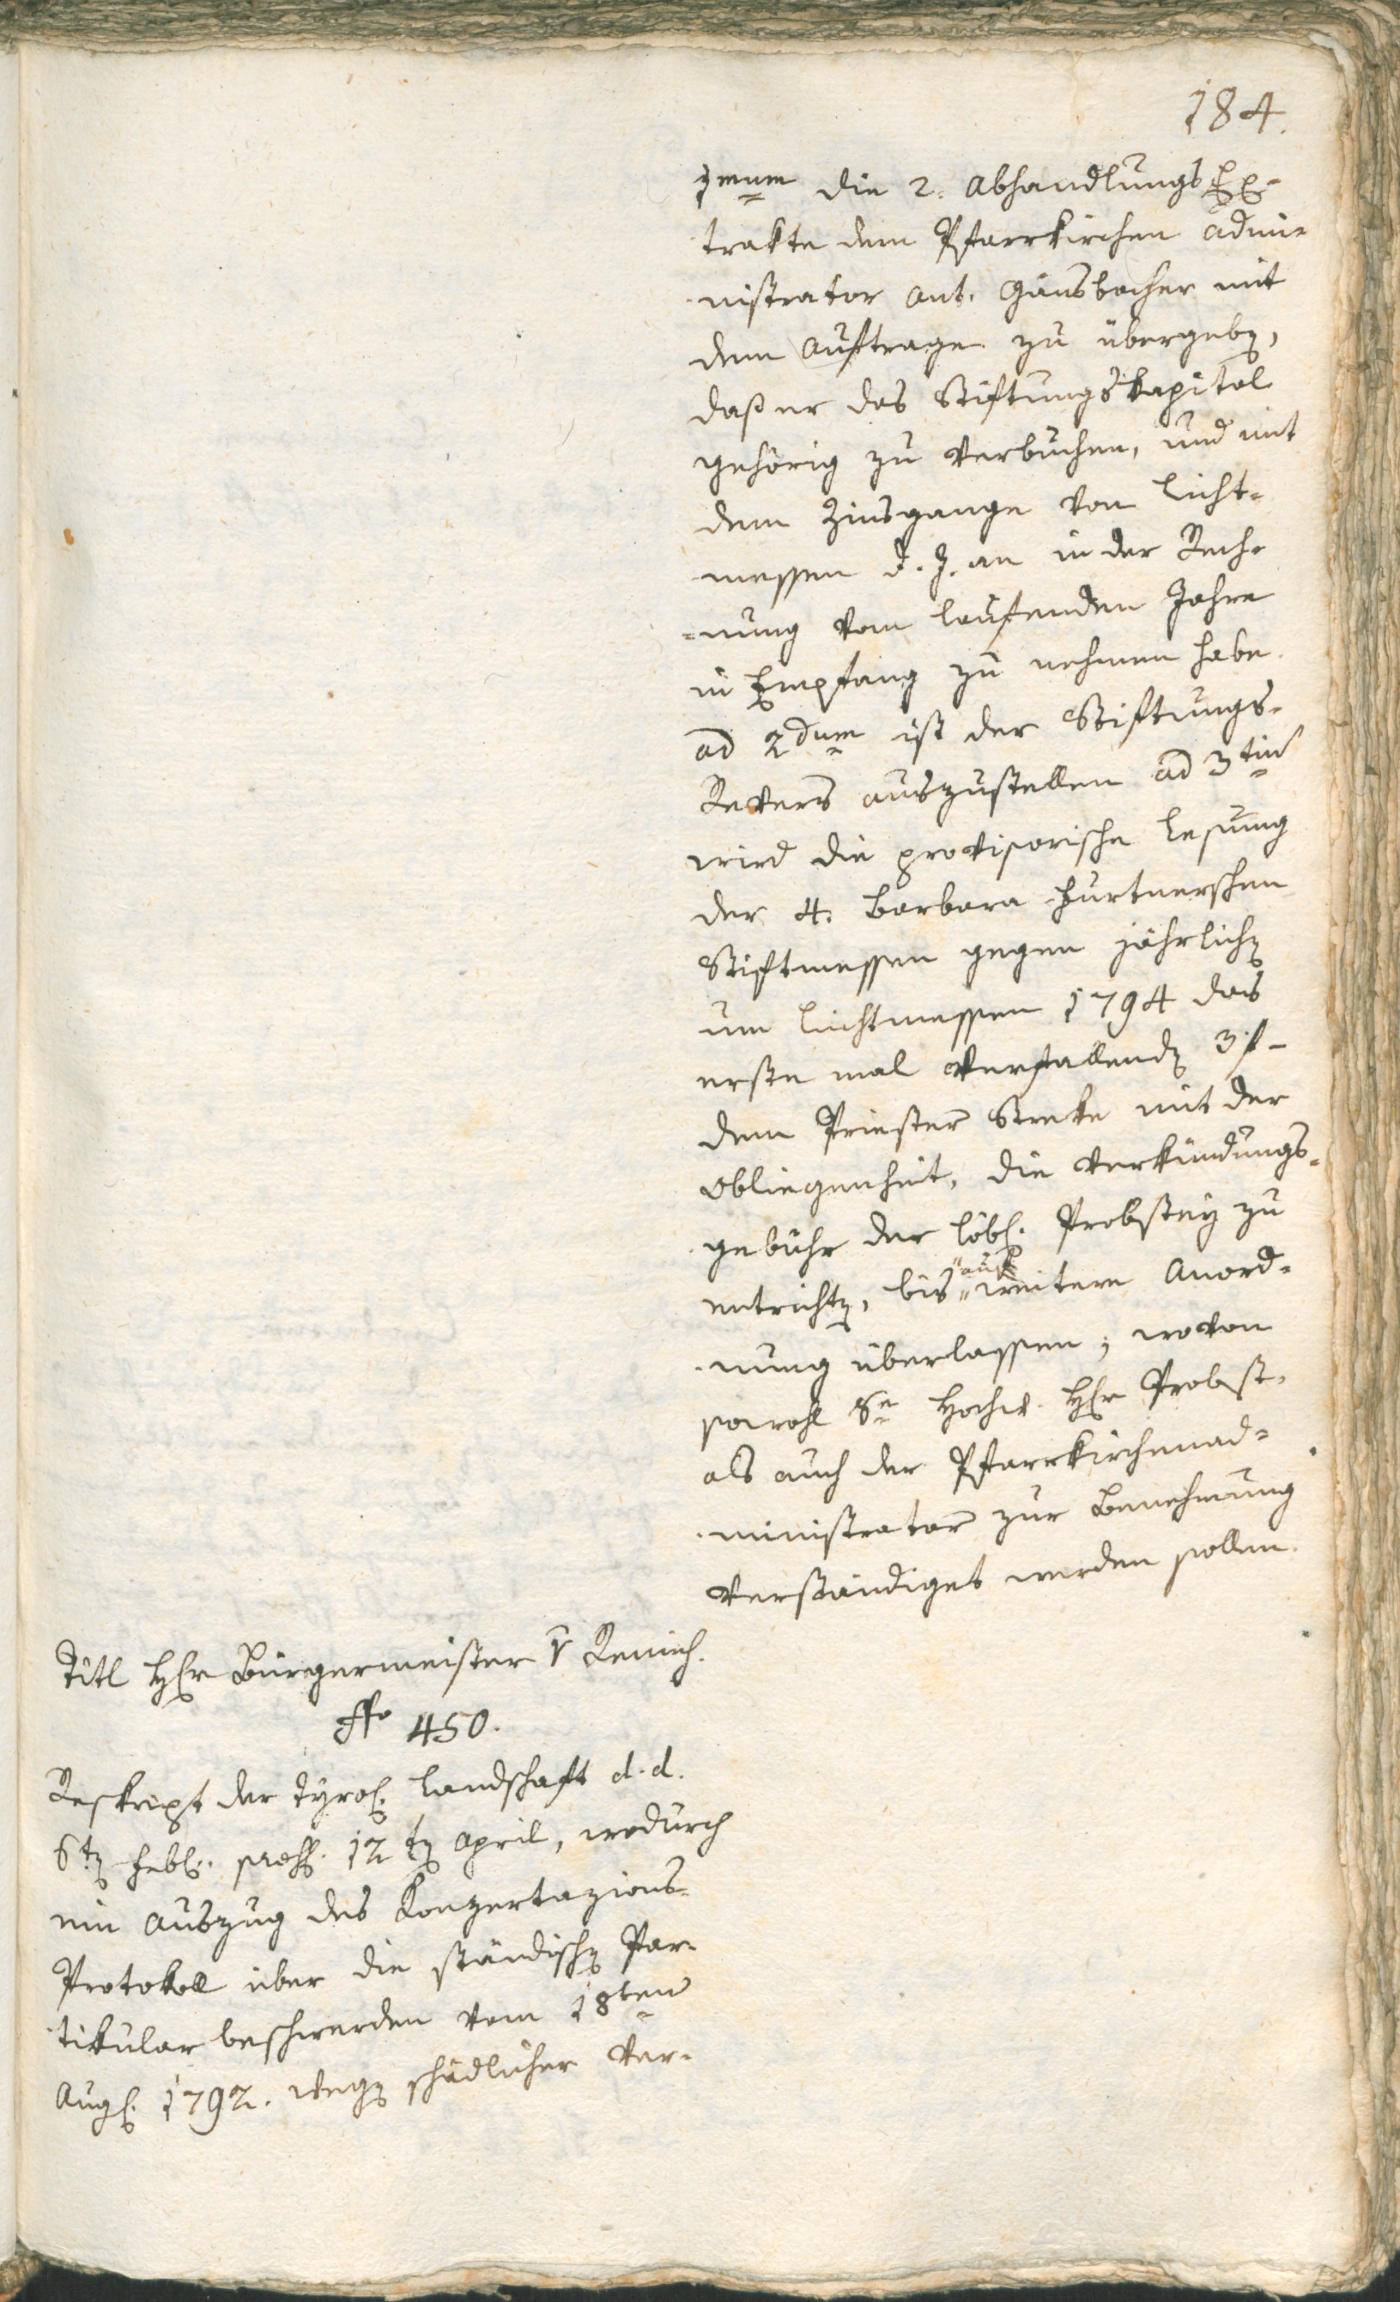 184.
1mum die 2. Abhandlungs Ex-
trakte dem Pfarrkirchen admi-
nistrator Ant. Gänsbacher mit
dem Auftrage zu übergeb,
daß er das Stiftungskapital
gehörig zu verbuchen, und mit
dem Zinsgange von Licht-
messen d. J. an in der Rech-
-nung vom laufenden Jahre
in Empfang zu nehmen habe.
ad 2dum ist der Stiftungs-
Revers auszustellen ad 3tiu
wird die provisorische Lesung
der 4. Barbara Hurtnerschen
Stiftmessen gegen jährlich
um Lichtmessen 1794 das
erste mal verfallend 3 f -
dem Priester Streke mit der
Obliegenheit, die Verkündungs-
gebühr der löbl. Probstey zu
entricht, bis auf weitere Anord-
nung überlassen; wovon
sowohl Se Hochw. Hr Probst
als auch der Pfarrkirchenad-
ministrator zur Benehmung
verständiget werden sollen.
Titl Hr Bürgermeister v Remich.
450.
Reskript der Tyrol. Landschaft d. d.
6t Febl. präs. 12 t April, wodurch
ein Auszug des Konzertazions-
Protokoll über die ständisch Par-
tikular beschwerden vom 18ten
Aug. 1792. weg schädlicher Ver-